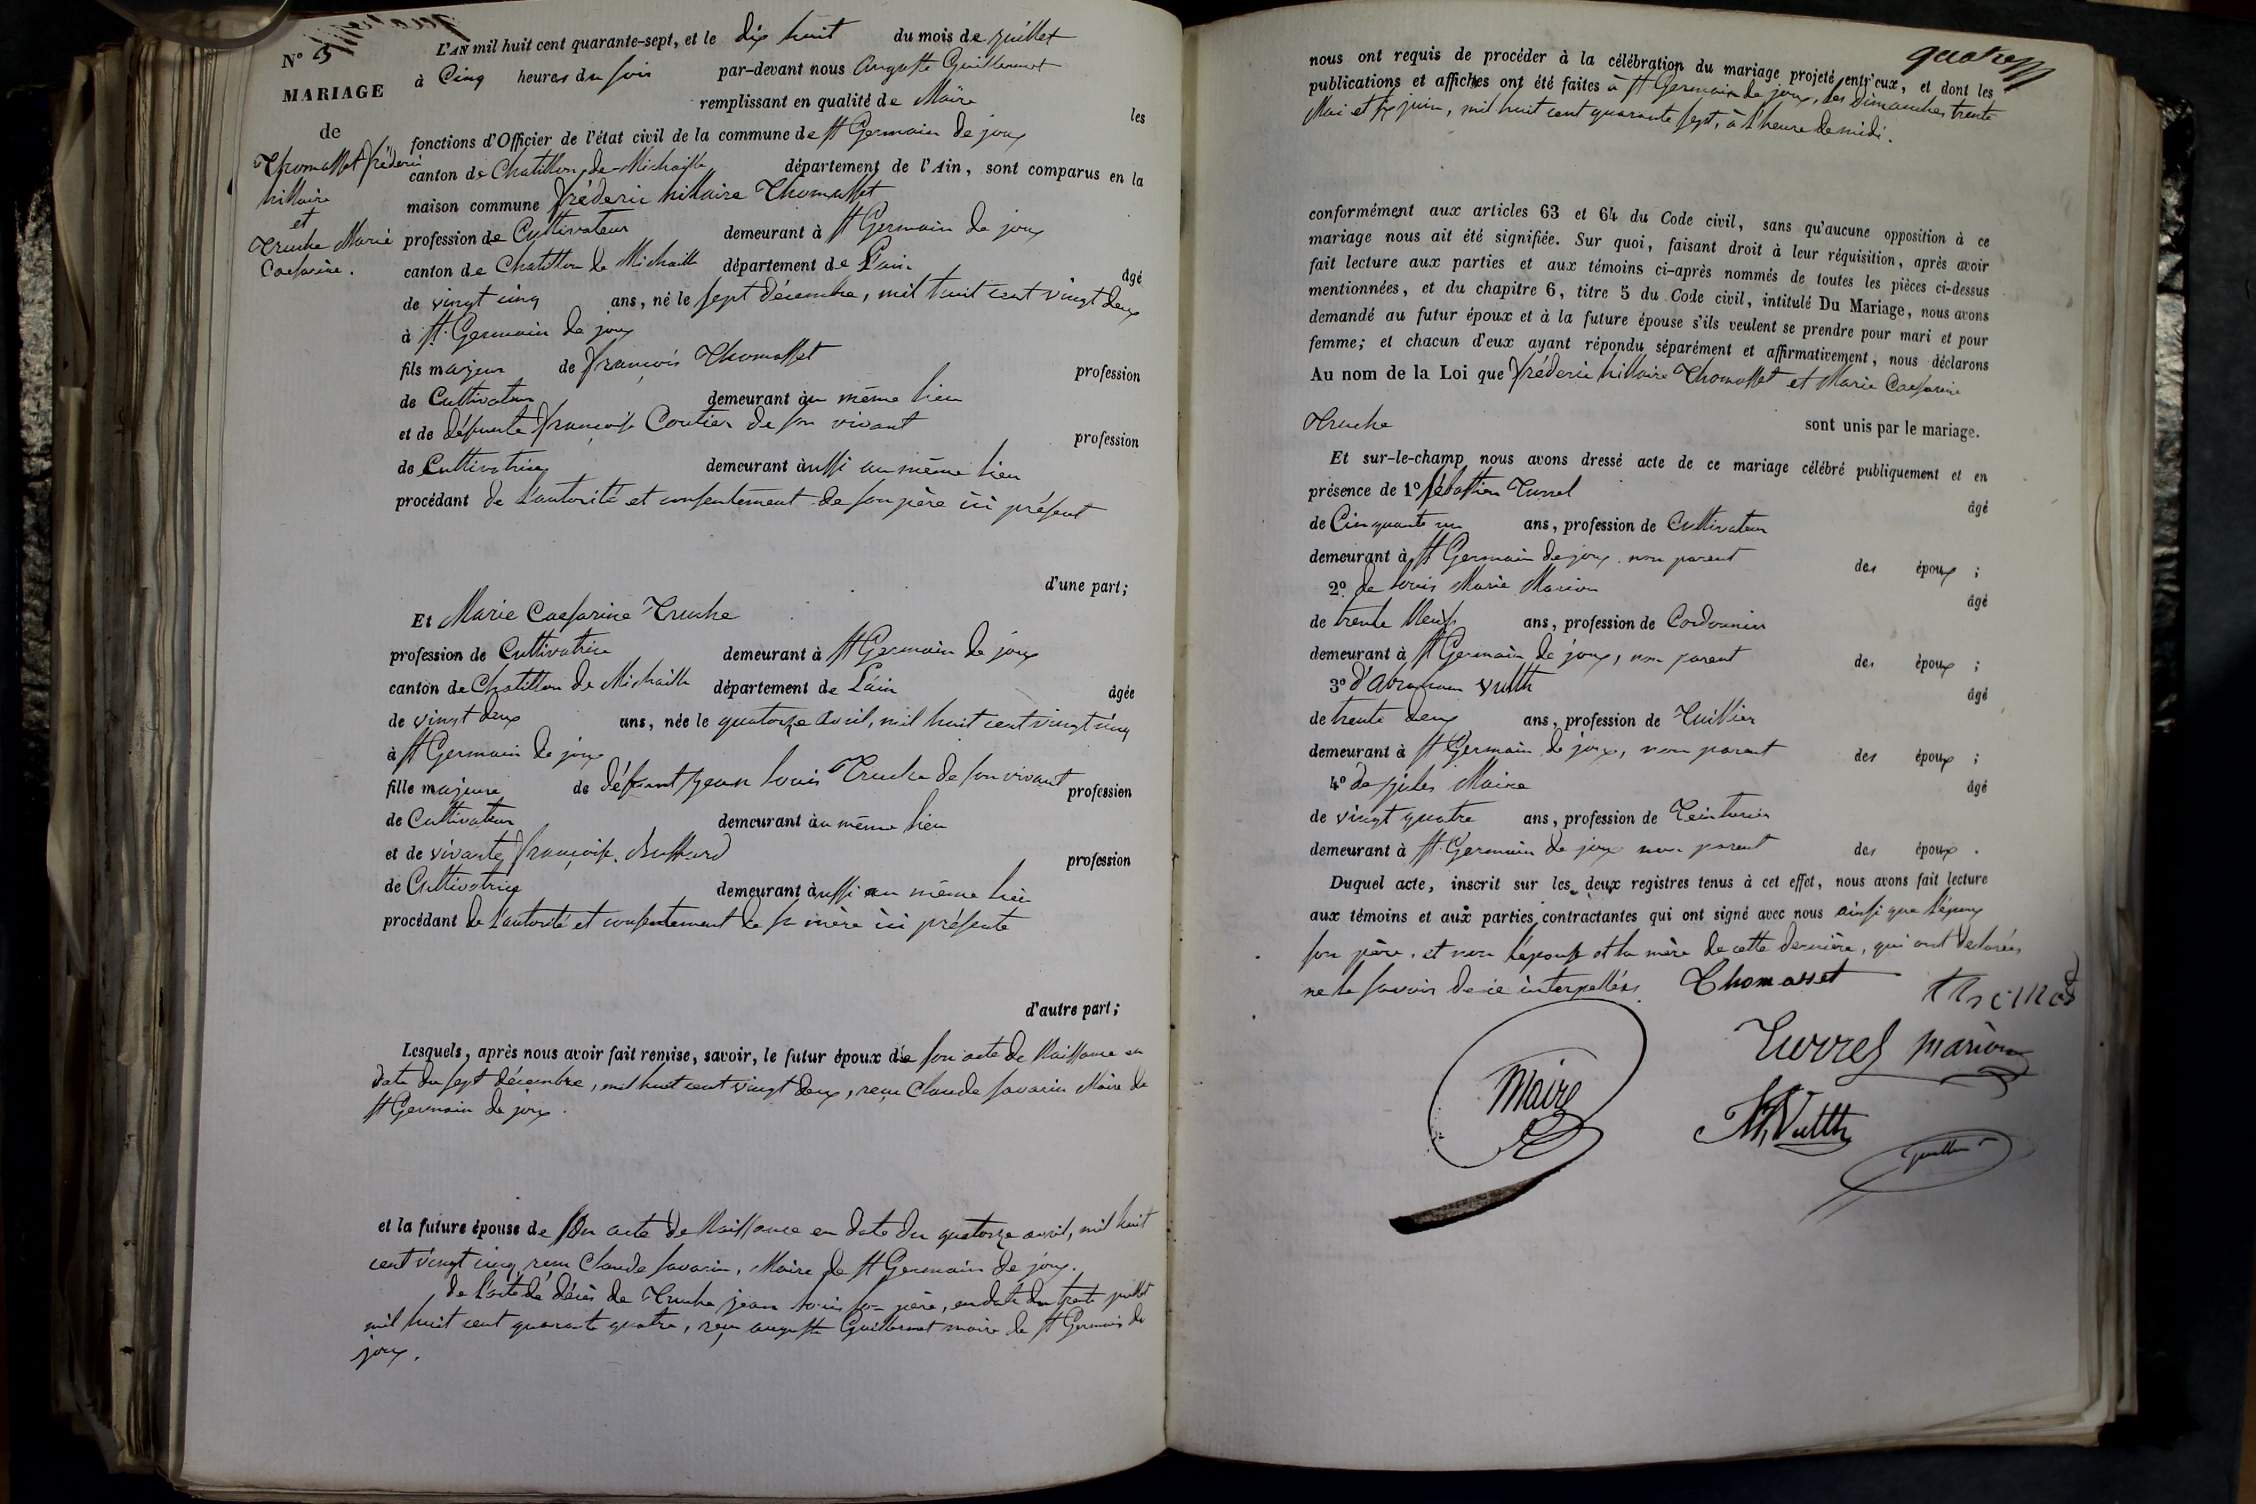 N° 3
MARIAGE
de
Thomasset fréderic
hillaire
et
Truche Marie
Caesarine.
L'AN mil huit cent quarante-sept, et le dix huit du mois de juillet
à Cinq heures du soir par-devant nous Auguste Guillermet
remplissant en qualité de Maire les
fonctions d'Officier de l'état civil de la commune de St Germain de joux
canton de Chatillon de Michaille département de l'Ain, sont comparus en la
maison commune fréderic hillaire Thomasset
profession de Cultivateur demeurant à St Germain de joux
canton de Chatillon de Michaille département de L'ain âgé
de vingt cinq ans, né le sept décembre, mil huit cent vingt deux
à St Germain de joux
fils majeur de françois Thomasset profession
de Cultivateur demeurant au même lieu
et de défunte françoise Coutier de son vivant profession
de Cultivatrice demeurant aussi au même lieu
procédant de L'autorité et consentement de son père ici présent
d'une part;
Et Marie Caesarine Truche
profession de Cultivatrice demeurant à St Germain de joux
canton de Chatillon de Michaille département de L'ain âgée
de vingt deux ans, née le quatorze avril, mil huit cent vingt cinq
à St Germain de joux
fille majeure de défunt jean louis Truche de son vivant profession
de Cultivateur demeurant au même lieu
et de vivante françoise profession
de Cultivatrice demeurant aussi au même lieu
procédant de L'autorité et consentement de sa mère ici présente
d'autre part;
Lesquels, après nous avoir fait remise, savoir, le futur époux de son acte de Naissance en
date du sept décembre, mil huit cent vingt deux, reçu Claude Savarin Maire de
St Germain de joux.
et la future épouse de son acte de Naissance en date du quatorze avril, mil huit
cent vingt cinq, reçu Claude Savarin, Maire de St Germain de joux.
de l'acte de décès de Truche jean louis son père, en date du trente juillet
mil huit cent quarante quatre, reçu auguste Guillermet maire de St Germain de
joux.
quatre
nous ont requis de procéder à la célébration du mariage projeté entr'eux, et dont les
publications et affiches ont été faites à St Germain de joux, les Dimanches trente
Mai et six juin, mil huit cent quarante sept, à L'heure de midi.
conformément aux articles 63 et 64 du Code civil, sans qu'aucune opposition à ce
mariage nous ait été signifiée. Sur quoi, faisant droit à leur réquisition, après avoir
fait lecture aux parties et aux témoins ci-après nommés de toutes les pièces ci-dessus
mentionnées, et du chapitre 6, titre 5 du Code civil, intitulé Du Mariage, nous avons
demandé au futur époux et à la future épouse s'ils veulent se prendre pour mari et pour
femme; et chacun d'eux ayant répondu séparément et affirmativement, nous déclarons
Au nom de la Loi que fréderic hillaire Thomasset et Marie Caesarine
Truche sont unis par le mariage.
Et sur-le-champ nous avons dressé acte de ce mariage célébré publiquement et en
présence de 1° Sébastien Turrel âgé
de Cinquante un ans, profession de Cultivateur
demeurant à St Germain de joux non parent des époux ;
2° de louis Marie Marion âgé
de trente Neuf ans, profession de Cordonnier
demeurant à St Germain de joux, non parent des époux ;
3° d'Abraham Vulth âgé
de trente deux ans, profession de Tuillier
demeurant à St Germain de joux, non parent des époux ;
4° de jules Maire âgé
de vingt quatre ans, profession de Teinturier
demeurant à St Germain de joux non parent des époux.
Duquel acte, inscrit sur les deux registres tenus à cet effet, nous avons fait lecture
aux témoins et aux parties contractantes qui ont signé avec nous ainsi que L'époux
son père. et non l'épouse et la mère de cette dernière, qui ont declarées
ne le savoir de ce interpellées. Thomasset
Turrel Marion
Maire
Vulth